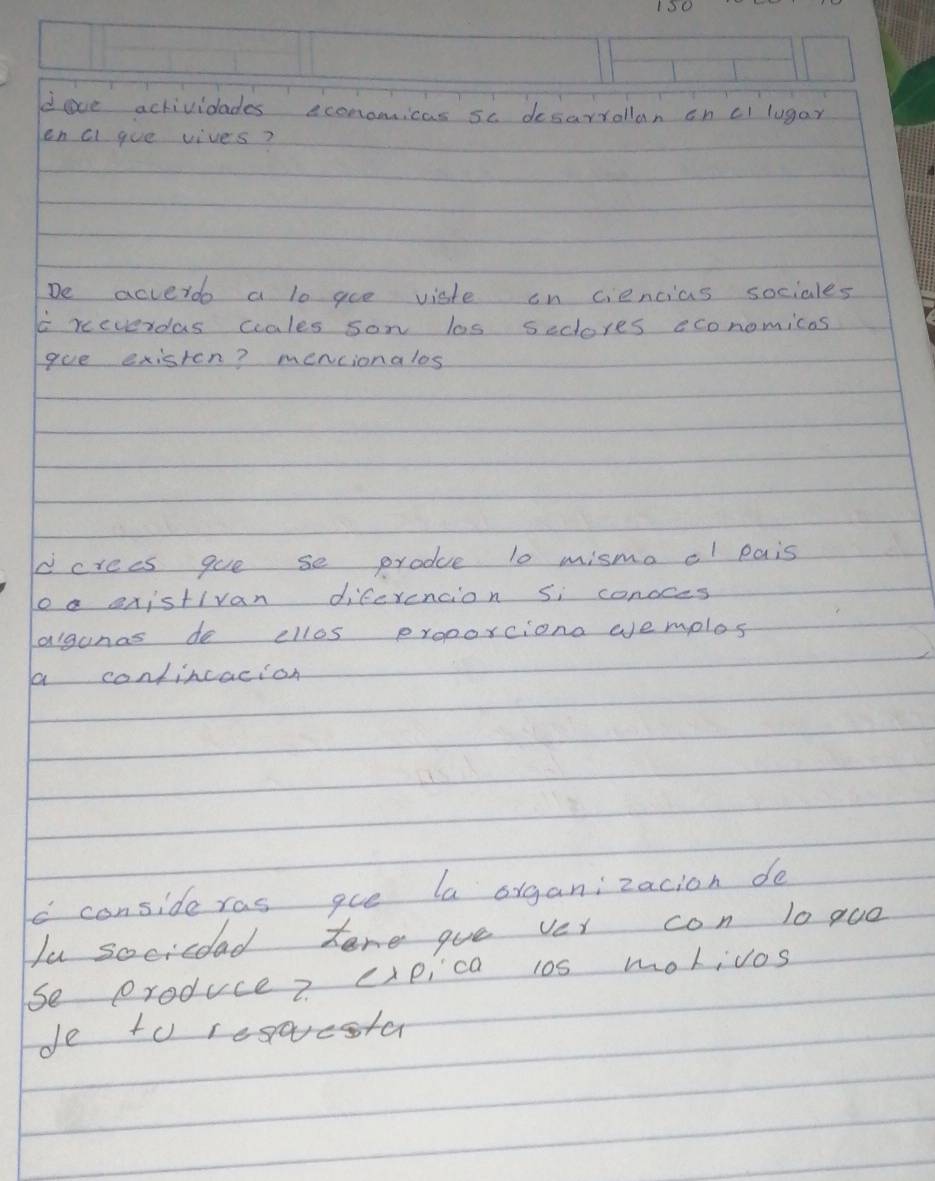 150
¿Que actividades economicas se desarrollan en el lugar
en el que vives?
De acuerdo a lo que viste en ciencias sociales
¿recuerdas cuales son los sectores economicos
que existen? mencionalos
¿crees que se produce lo mismo el pais
o existiran diferencion si conoces
algunas de ellos proporciona ejemplos
a contincacion
¿consideras que la organizacion de
la sociedad tene que ver con lo que
se produce? expica los motivos
de tu respuesta